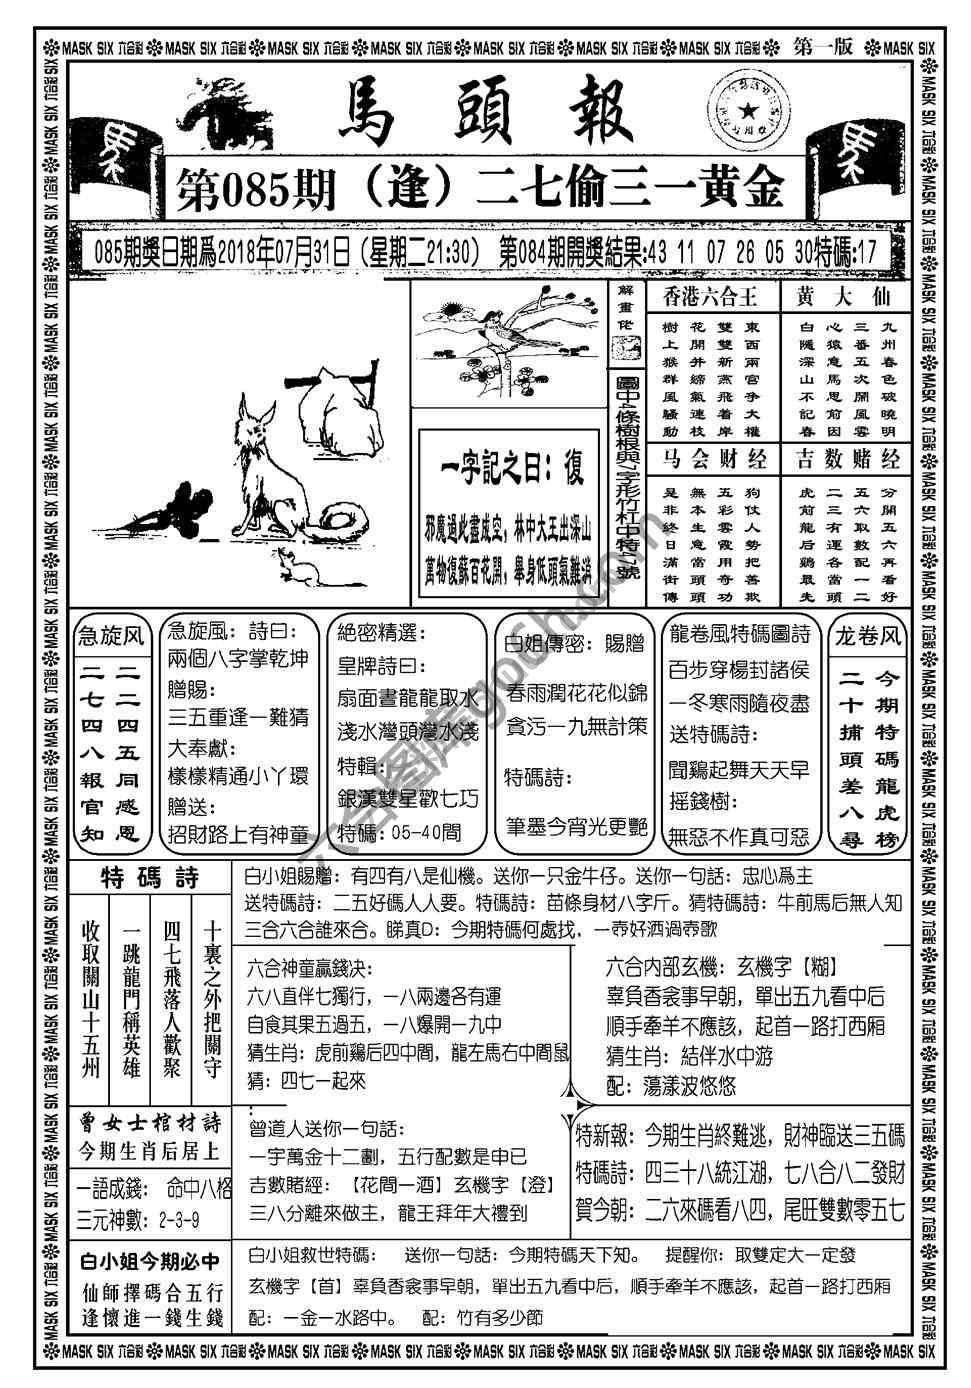 MASK SIX 六合彩 MASK SIX 六合彩 MASK SIX 六合彩 MASK SIX 六合彩 MASK SIX 六合彩 MASK SIX 六合彩 MASK SIX 六合彩 第一版 MASK SIX
馬頭報
第085期（逢）二七偷三一黄金
085期獎日期爲2018年07月31日（星期二21:30） 第084期開獎結果:43 11 07 26 05 30特碼:17
解畫佬
圖中4條樹根與7字形竹杠中特47號
一字記之日：復
邪魔過此盡成空，林中大王出深山
萬物復蘇百花開，舉身低頭氣難消
香港六合王
東西兩宫争大權
雙雙新燕飛着岸
花開并締氣連枝
樹上猴群風騷動
黄大仙
九州春色破曉明
三番五次開風雲
心猿意馬思前因
白隱深山不記春
马会财经
狗仗人勢把善欺
五彩雲霞用奇功
無本生意當頭頭
是非終日滿街傳
吉数赌经
分開五六再看好
五六取數配一二
二三有運各當頭
虎前龍后鷄最先
急旋风
二二四五同感恩
二七四八報官知
急旋風：詩曰：
兩個八字掌乾坤
贈賜：
三五重逢一難猜
大奉獻：
樣樣精通小丫環
贈送：
招財路上有神童
絶密精選：
皇牌詩曰：
扇面晝龍龍取水
淺水灣頭灣水淺
特輯：
銀漢雙星歡七巧
特碼：05-40間
白姐傳密：賜贈
春雨潤花花似錦
貪污一九無計策
特碼詩：
筆墨今宵光更艷
龍卷風特碼圖詩
百步穿楊封諸侯
一冬寒雨隨夜盡
送特碼詩：
聞鷄起舞天天早
摇錢樹：
無惡不作真可惡
龙卷风
今期特碼龍虎榜
二十捕頭差八尋
特碼詩
十裏之外把關守
四七飛落人歡聚
一跳龍門稱英雄
收取關山十五州
白小姐賜贈：有四有八是仙機。送你一只金牛仔。送你一句話：忠心爲主
送特碼詩：二五好碼人人要。特碼詩：苗條身材八字斤。猜特碼詩：牛前馬后無人知
三合六合誰來合。睇真D：今期特碼何處找，一壺好酒過壺歌
六合神童贏錢决：
六八直伴七獨行，一八兩邊各有運
自食其果五過五，一八爆開一九中
猜生肖：虎前鷄后四中間，龍左馬右中間鼠
猜：四七一起來
六合内部玄機：玄機字【糊】
辜負香衾事早朝，單出五九看中后
順手牽羊不應該，起首一路打西厢
猜生肖：結伴水中游
配：蕩漾波悠悠
曾女士棺材詩
今期生肖后居上
一語成錢：命中八格
三元神數：2-3-9
曾道人送你一句話：
一字萬金十二劃，五行配數是申已
吉數賭經：【花間一酒】玄機字【澄】
三八分離來做主，龍王拜年大禮到
特新報：今期生肖終難逃，財神臨送三五碼
特碼詩：四三十八統江湖，七八合八二發財
賀今朝：二六來碼看八四，尾旺雙數零五七
白小姐今期必中
仙師擇碼合五行
逢懷進一錢生錢
白小姐救世特碼： 送你一句話：今期特碼天下知。 提醒你：取雙定大一定發
玄機字【首】辜負香衾事早朝，單出五九看中后，順手牽羊不應該，起首一路打西厢
配：一金一水路中。 配：竹有多少節
MASK SIX 六合彩 MASK SIX 六合彩 MASK SIX 六合彩 MASK SIX 六合彩 MASK SIX 六合彩 MASK SIX 六合彩 MASK SIX 六合彩 MASK SIX 六合彩 MASK SIX
六合图库gooh.com